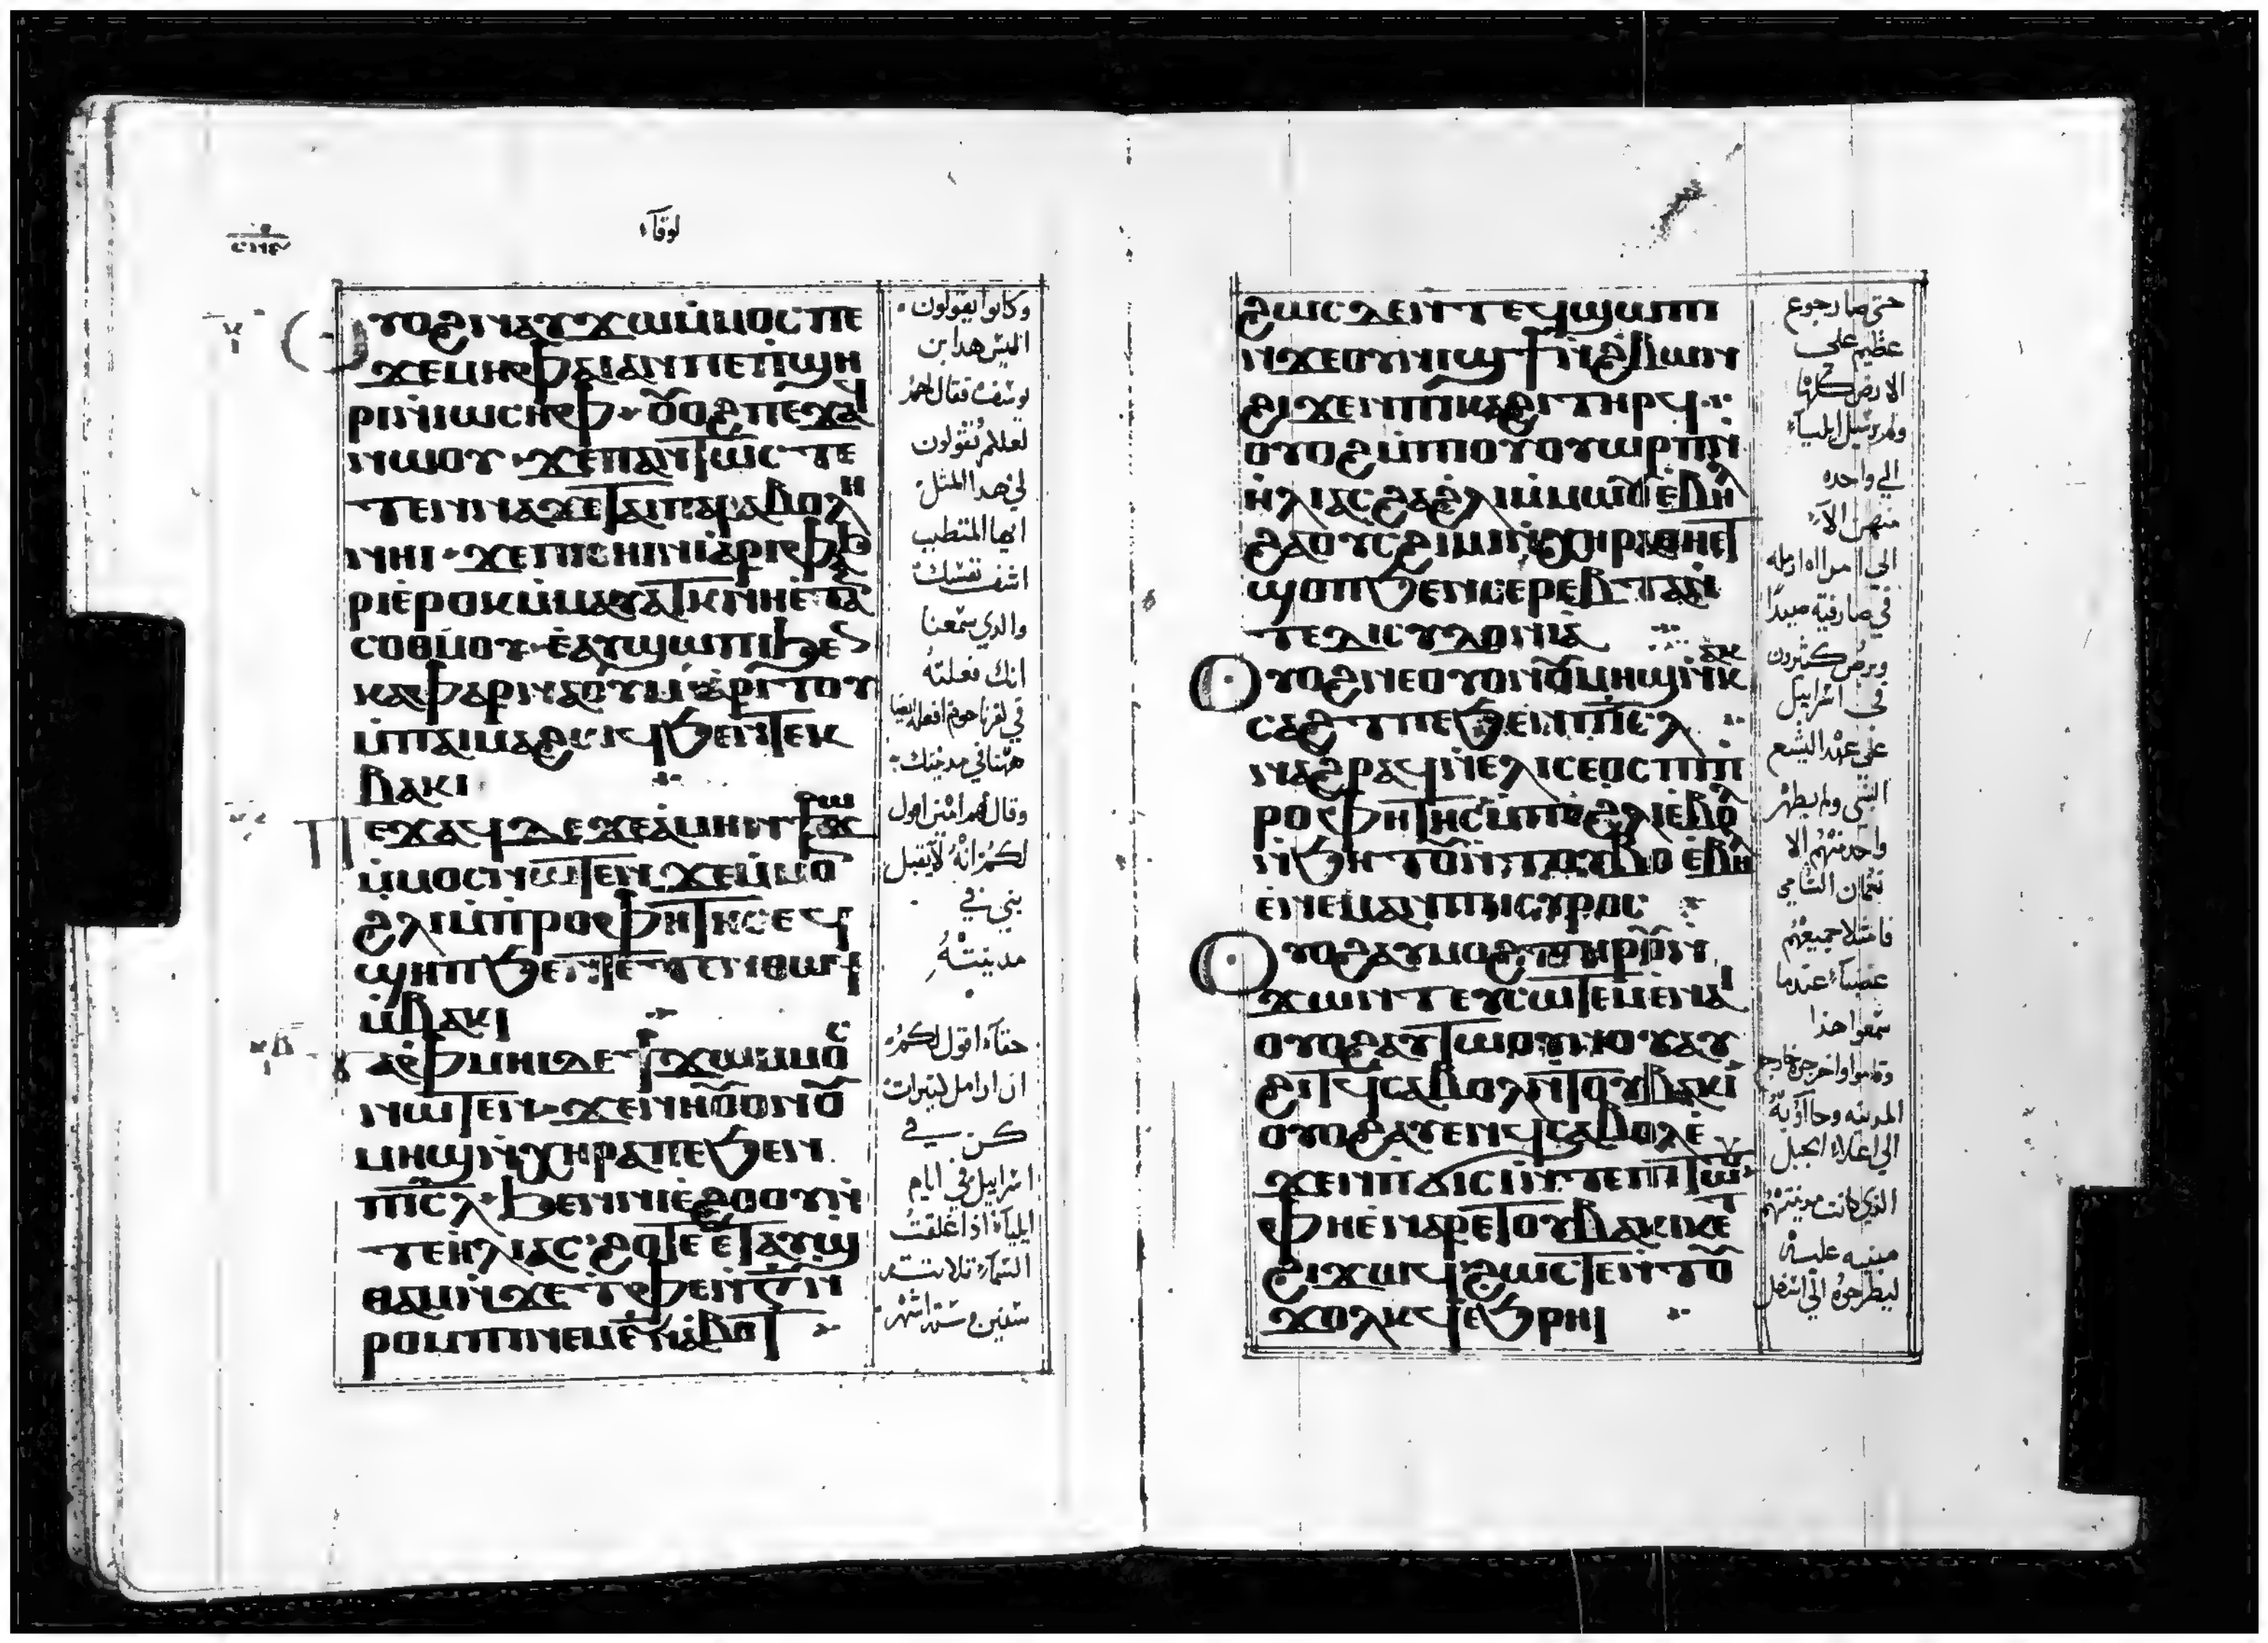 لوقا
ⲟⲩⲟϩ ⲛⲁⲩϫⲱ ⲙ̇ⲙⲟⲥ ⲡⲉ
ϫⲉⲙⲏ ⲫⲁⲓ ⲁⲛ ⲡⲉ ⲡ̇ϣⲏ
ⲣⲓ ⲛ̇ⲓⲱⲥⲏⲫ ⲟⲩⲟϩ ⲡⲉϫⲁϥ
ⲛⲱⲟⲩ ϫⲉ ⲡⲁⲛⲧⲱⲥ ⲧⲉ
ⲧⲉⲛⲛⲁϫⲉ ⲧⲁⲓⲡⲁⲣⲁⲃⲟⲗⲏ
ⲛⲏⲓ ϫⲉ ⲡⲓⲥⲏⲓⲛⲓ ⲁⲣⲓⲫⲁϧ
ⲣⲓ ⲉ̇ⲣⲟⲕ ⲙ̇ⲙⲁⲩⲁⲧⲕ ⲛⲏ ⲉ̇ⲧⲁⲛ
ⲥⲟⲑⲙⲟⲩ ⲉ̇ⲁⲩϣⲱⲡⲓ ϧⲉⲛ
ⲕⲁⲫⲁⲣⲛⲁⲟⲩⲙ ⲁⲣⲓⲧⲟⲩ
ⲙ̇ⲡⲁⲓⲙⲁ ϩⲱϥ ϧⲉⲛ ⲧⲉⲕ
ⲃⲁⲕⲓ
ⲡⲉϫⲁϥ ⲇⲉ ϫⲉ ⲁ̇ⲙⲏⲛ ϯϫⲱ
ⲙ̇ⲙⲟⲥ ⲛⲱⲧⲉⲛ ϫⲉ ⲙ̇ⲙⲟⲛ
ϩⲗⲓ ⲙ̇ⲡⲣⲟⲫⲏⲧⲏⲥ ⲉϥ
ϣⲏⲡ ϧⲉⲛ ⲧⲉ ⲧⲉ ⲑⲱϥ
ⲙ̇ⲃⲁⲕⲓ
ⲧⲁⲫⲙⲏⲓ ⲇⲉ ϯϫⲱ ⲙ̇ⲙⲟⲥ
ⲛⲱⲧⲉⲛ ϫⲉ ⲛⲉ ⲟⲩⲟⲛ ⲟⲩ
ⲙⲏϣ ⲛ̇ⲭⲏⲣⲁ ⲡⲉ ϧⲉⲛ
ⲡⲓⲥⲗ ϧⲉⲛ ⲛⲓⲉ̇ϩⲟⲟⲩ ⲛ̇
ⲧⲉ ⲏⲗⲓⲁⲥ ϩⲟⲧⲉ ⲉ̇ⲧⲁⲩϣ
ⲑⲁⲙ ⲛ̇ϫⲉ ⲧ̇ⲫⲉ ⲛ̇ⲅ̅ ⲛ̇
ⲣⲟⲙⲡⲓ ⲛⲉⲙ ⲋ̅ ⲛ̇ⲁ̇ⲃⲟⲧ
وكانوا يقولون
اليس هدا بن
يوسف فقال لهم
لعلكم تقولون
لي هدا المثل
ايها المتطبب
اشف نفسك
والدي سمعنا
انك فعلته
في كفرناحوم افعله ايضا
ههنا في مدينتك
وقال لهم امين اقول
لكم انه لا يقبل
نبي في
مدينته
حقا اقول لكم
ان ارامل كثيرات
كن في
اسراييل في ايام
ايليا اذ اغلقت
السما ثلاث
سنين وستة اشهر
ϩⲱⲥⲇⲉ ⲛ̇ⲧⲉϥϣⲱⲡⲓ
ⲛ̇ϫⲉ ⲟⲩⲛⲓϣϯ ⲛ̇ϩ̇ⲃⲱⲛ
ϩⲓϫⲉⲛ ⲡⲓⲕⲁϩⲓ ⲧⲏⲣϥ
ⲟⲩⲟϩ ⲙ̇ⲡⲟⲩⲟⲩⲱⲣⲡ ⲛ̇
ⲏⲗⲓⲁⲥ ϩⲁ ϩ̇ⲗⲓ ⲙ̇ⲙⲱⲟⲩ ⲉⲃⲏⲗ
ϩⲁ ⲟⲩⲥϩⲓⲙⲓ ⲛ̇ⲭⲏⲣⲁ ⲑⲏⲉⲧ
ϣⲟⲡ ϧⲉⲛ ⲥⲉⲣⲉⲃⲧⲁ ⲛ̇
ⲧⲉ ϯⲥⲩⲇⲟⲛⲓⲁ
ⲟⲩⲟϩ ⲛⲉ ⲟⲩⲟⲛ ⲟⲩⲙⲏϣ ⲛ̇ⲕⲁⲕ
ⲥⲁϩⲧ ⲡⲉ ϧⲉⲛ ⲡⲓⲥⲗ
ⲛⲁϩⲣⲁϥ ⲛ̇ⲉⲗⲓⲥⲉⲟⲥ ⲡⲓⲡ̇
ⲣⲟⲫⲏⲧⲏⲥ ⲙ̇ⲡⲉ ϩⲗⲓ ⲉⲃⲟⲗ
ⲛ̇ϧⲏⲧⲟⲩ ⲧⲟⲩⲃⲟ ⲉ̇ⲃⲏⲗ
ⲉ̇ⲛⲉⲙⲁⲛ ⲡⲓⲥⲩⲣⲟⲥ
ⲟⲩⲟϩ ⲁⲩⲙⲟϩ ⲧⲏⲣⲟⲩ ⲛ̇
ϫⲱⲛⲧ ⲉⲩⲥⲱⲧⲉⲙ ⲉⲛⲁⲓ
ⲟⲩⲟϩ ⲁⲩⲧⲱⲟⲩⲛⲟⲩ ⲁⲩ
ϩⲓⲧϥ ⲥⲁⲃⲟⲗ ⲛ̇ⲧⲟⲩⲃⲁⲕⲓ
ⲟⲩⲟϩ ⲁⲩⲉⲛϥ ⲥⲁⲃⲟⲗ ⲉ̇
ϫⲉⲛ ⲡ ϭⲓⲥⲓ ⲛ̇ⲧⲉ ⲡⲓⲧⲱⲟⲩ
ⲫⲏ ⲉ̇ⲛⲁⲣⲉ ⲧⲟⲩⲃⲁⲕⲓ ⲕⲉⲧ
ϩⲓϫⲱϥ ϩⲱⲥⲧⲉ ⲛ̇ⲧⲟⲩ
ϫⲟⲗⲕϥ ⲉϧⲣⲏⲓ
حتى صار جوع
عظيم على
الارض كلها
ولم يرسل ايليا
الي واحده
منهن الا
الي امراه ارمله
في صارفية صيدا
وبرص كثيرون
في اسراييل
علي عهد اليشع
النبي ولم يطهر
واحد منهم الا
نعمان الشامي
فامتلا جميعهم
غضبا عندما
سمعوا هذا
وقاموا واخرجوه خارج
المدينه وجااو به
الي اعلا الجبل
الذي كانت مدينتهم
مبنيه عليه
ليطرحوه الي اسفل